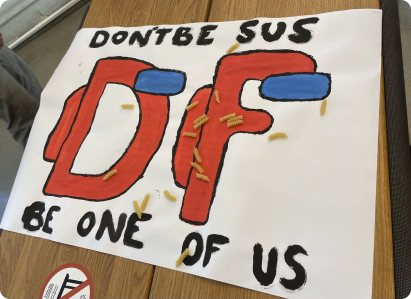 DON'T BE SUS
DF
BE ONE OF US